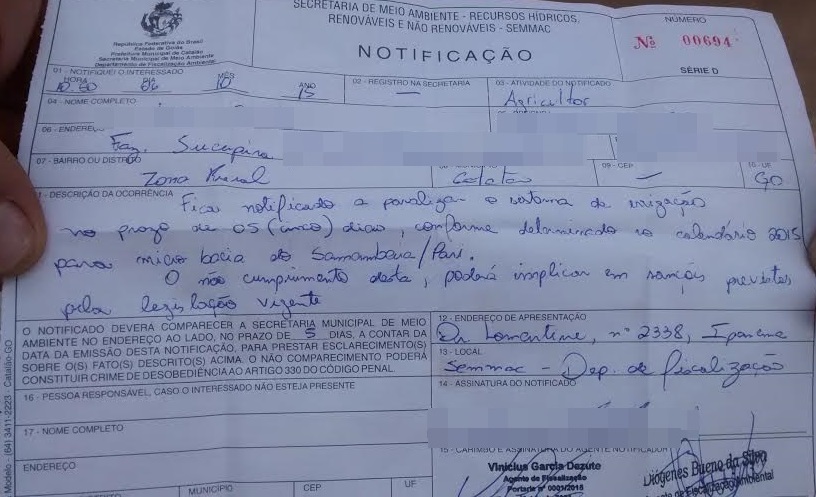 SECRETARIA DE MEIO AMBIENTE - RECURSOS HÍDRICOS,
RENOVÁVEIS E NÃO RENOVÁVEIS - SEMMAC
NOTIFICAÇÃO
República Federativa do Brasil
Estado de Goiás
Prefeitura Municipal de Catalão
Secretaria Municipal de Meio Ambiente
Departamento de Fiscalização Ambiental
NÚMERO
Nº 00694
SÉRIE D
01 - NOTIFIQUEI O INTERESSADO
HORA DIA MÊS ANO
06 10 15
02 - REGISTRO NA SECRETARIA
—
03 - ATIVIDADE DO NOTIFICADO
Agricultor
04 - NOME COMPLETO
06 - ENDEREÇO
Faz. Sucupira
07 - BAIRRO OU DISTRITO
Zona Rural
Catalão
09 - CEP
—
10 - UF
GO
- DESCRIÇÃO DA OCORRÊNCIA
Fica notificado a paralizar o sistema de irrigação
no prazo de 05 (cinco) dias, conforme determinado no calendário 2015
para micro bacia do Samambaia/Pari.
O não cumprimento desta, poderá implicar em sanções previstas
pela legislação vigente
O NOTIFICADO DEVERÁ COMPARECER A SECRETARIA MUNICIPAL DE MEIO
AMBIENTE NO ENDEREÇO AO LADO, NO PRAZO DE 5 DIAS, A CONTAR DA
DATA DA EMISSÃO DESTA NOTIFICAÇÃO, PARA PRESTAR ESCLARECIMENTO(S)
SOBRE O(S) FATO(S) DESCRITO(S) ACIMA. O NÃO COMPARECIMENTO PODERÁ
CONSTITUIR CRIME DE DESOBEDIÊNCIA AO ARTIGO 330 DO CÓDIGO PENAL
12 - ENDEREÇO DE APRESENTAÇÃO
Dr. Lamartine, nº 2338, Ipanema
13 - LOCAL
Semmac - Dep. de fiscalização
14 - ASSINATURA DO NOTIFICADO
16 - PESSOA RESPONSÁVEL, CASO O INTERESSADO NÃO ESTEJA PRESENTE
17 - NOME COMPLETO
ENDEREÇO
MUNICÍPIO CEP UF
15 - CARIMBO E ASSINATURA DO AGENTE NOTIFICADOR
Vinicius Garcia Dezute
Agente de Fiscalização
Portaria nº 0001/2015
Diógenes Bueno da Silva
de Fiscalização Ambiental
Modelo - (64) 3411-2223 - Catalão-GO